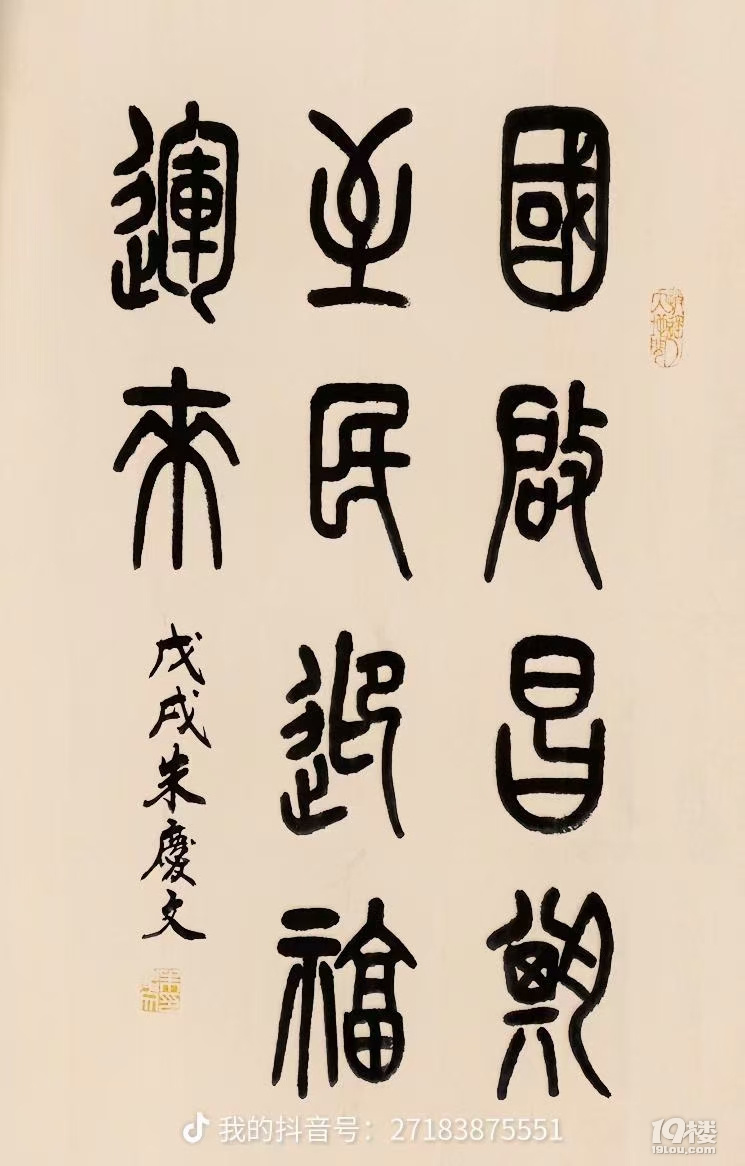 國啟昌期
至民迎福
運來
戊戌朱慶文
我的抖音号：27183875551
19楼
19lou.com